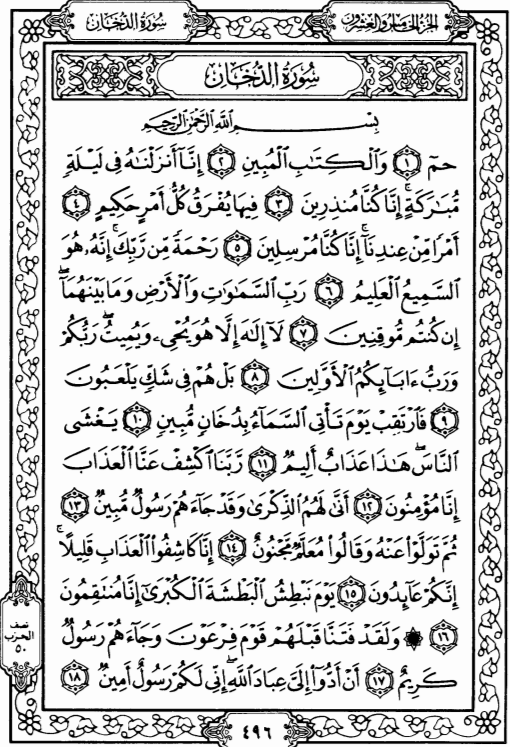 الجزء الخامس والعشرون
سورة الدخان
سُورَةُ الدُّخَانِ
بِسْمِ اللَّهِ الرَّحْمَٰنِ الرَّحِيمِ
حمٓ ١ وَالْكِتَابِ الْمُبِينِ ٢ إِنَّا أَنزَلْنَاهُ فِي لَيْلَةٍ
مُّبَارَكَةٍ ۚ إِنَّا كُنَّا مُنذِرِينَ ٣ فِيهَا يُفْرَقُ كُلُّ أَمْرٍ حَكِيمٍ ٤
أَمْرًا مِّنْ عِندِنَا ۚ إِنَّا كُنَّا مُرْسِلِينَ ٥ رَحْمَةً مِّن رَّبِّكَ ۚ إِنَّهُ هُوَ
السَّمِيعُ الْعَلِيمُ ٦ رَبِّ السَّمَاوَاتِ وَالْأَرْضِ وَمَا بَيْنَهُمَا ۖ
إِن كُنتُم مُّوقِنِينَ ٧ لَا إِلَٰهَ إِلَّا هُوَ يُحْيِي وَيُمِيتُ ۖ رَبُّكُمْ
وَرَبُّ ءَابَائِكُمُ الْأَوَّلِينَ ٨ بَلْ هُمْ فِي شَكٍّ يَلْعَبُونَ
٩ فَارْتَقِبْ يَوْمَ تَأْتِي السَّمَاءُ بِدُخَانٍ مُّبِينٍ ١٠ يَغْشَى
النَّاسَ ۖ هَٰذَا عَذَابٌ أَلِيمٌ ١١ رَّبَّنَا اكْشِفْ عَنَّا الْعَذَابَ
إِنَّا مُؤْمِنُونَ ١٢ أَنَّىٰ لَهُمُ الذِّكْرَىٰ وَقَدْ جَاءَهُمْ رَسُولٌ مُّبِينٌ ١٣
ثُمَّ تَوَلَّوْا عَنْهُ وَقَالُوا مُعَلَّمٌ مَّجْنُونٌ ١٤ إِنَّا كَاشِفُوا الْعَذَابِ قَلِيلًا ۚ
إِنَّكُمْ عَائِدُونَ ١٥ يَوْمَ نَبْطِشُ الْبَطْشَةَ الْكُبْرَىٰ إِنَّا مُنتَقِمُونَ
١٦ ۞ وَلَقَدْ فَتَنَّا قَبْلَهُمْ قَوْمَ فِرْعَوْنَ وَجَاءَهُمْ رَسُولٌ
كَرِيمٌ ١٧ أَنْ أَدُّوا إِلَيَّ عِبَادَ اللَّهِ ۖ إِنِّي لَكُمْ رَسُولٌ أَمِينٌ ١٨
نصف
الحزب
٥٠
٤٩٦